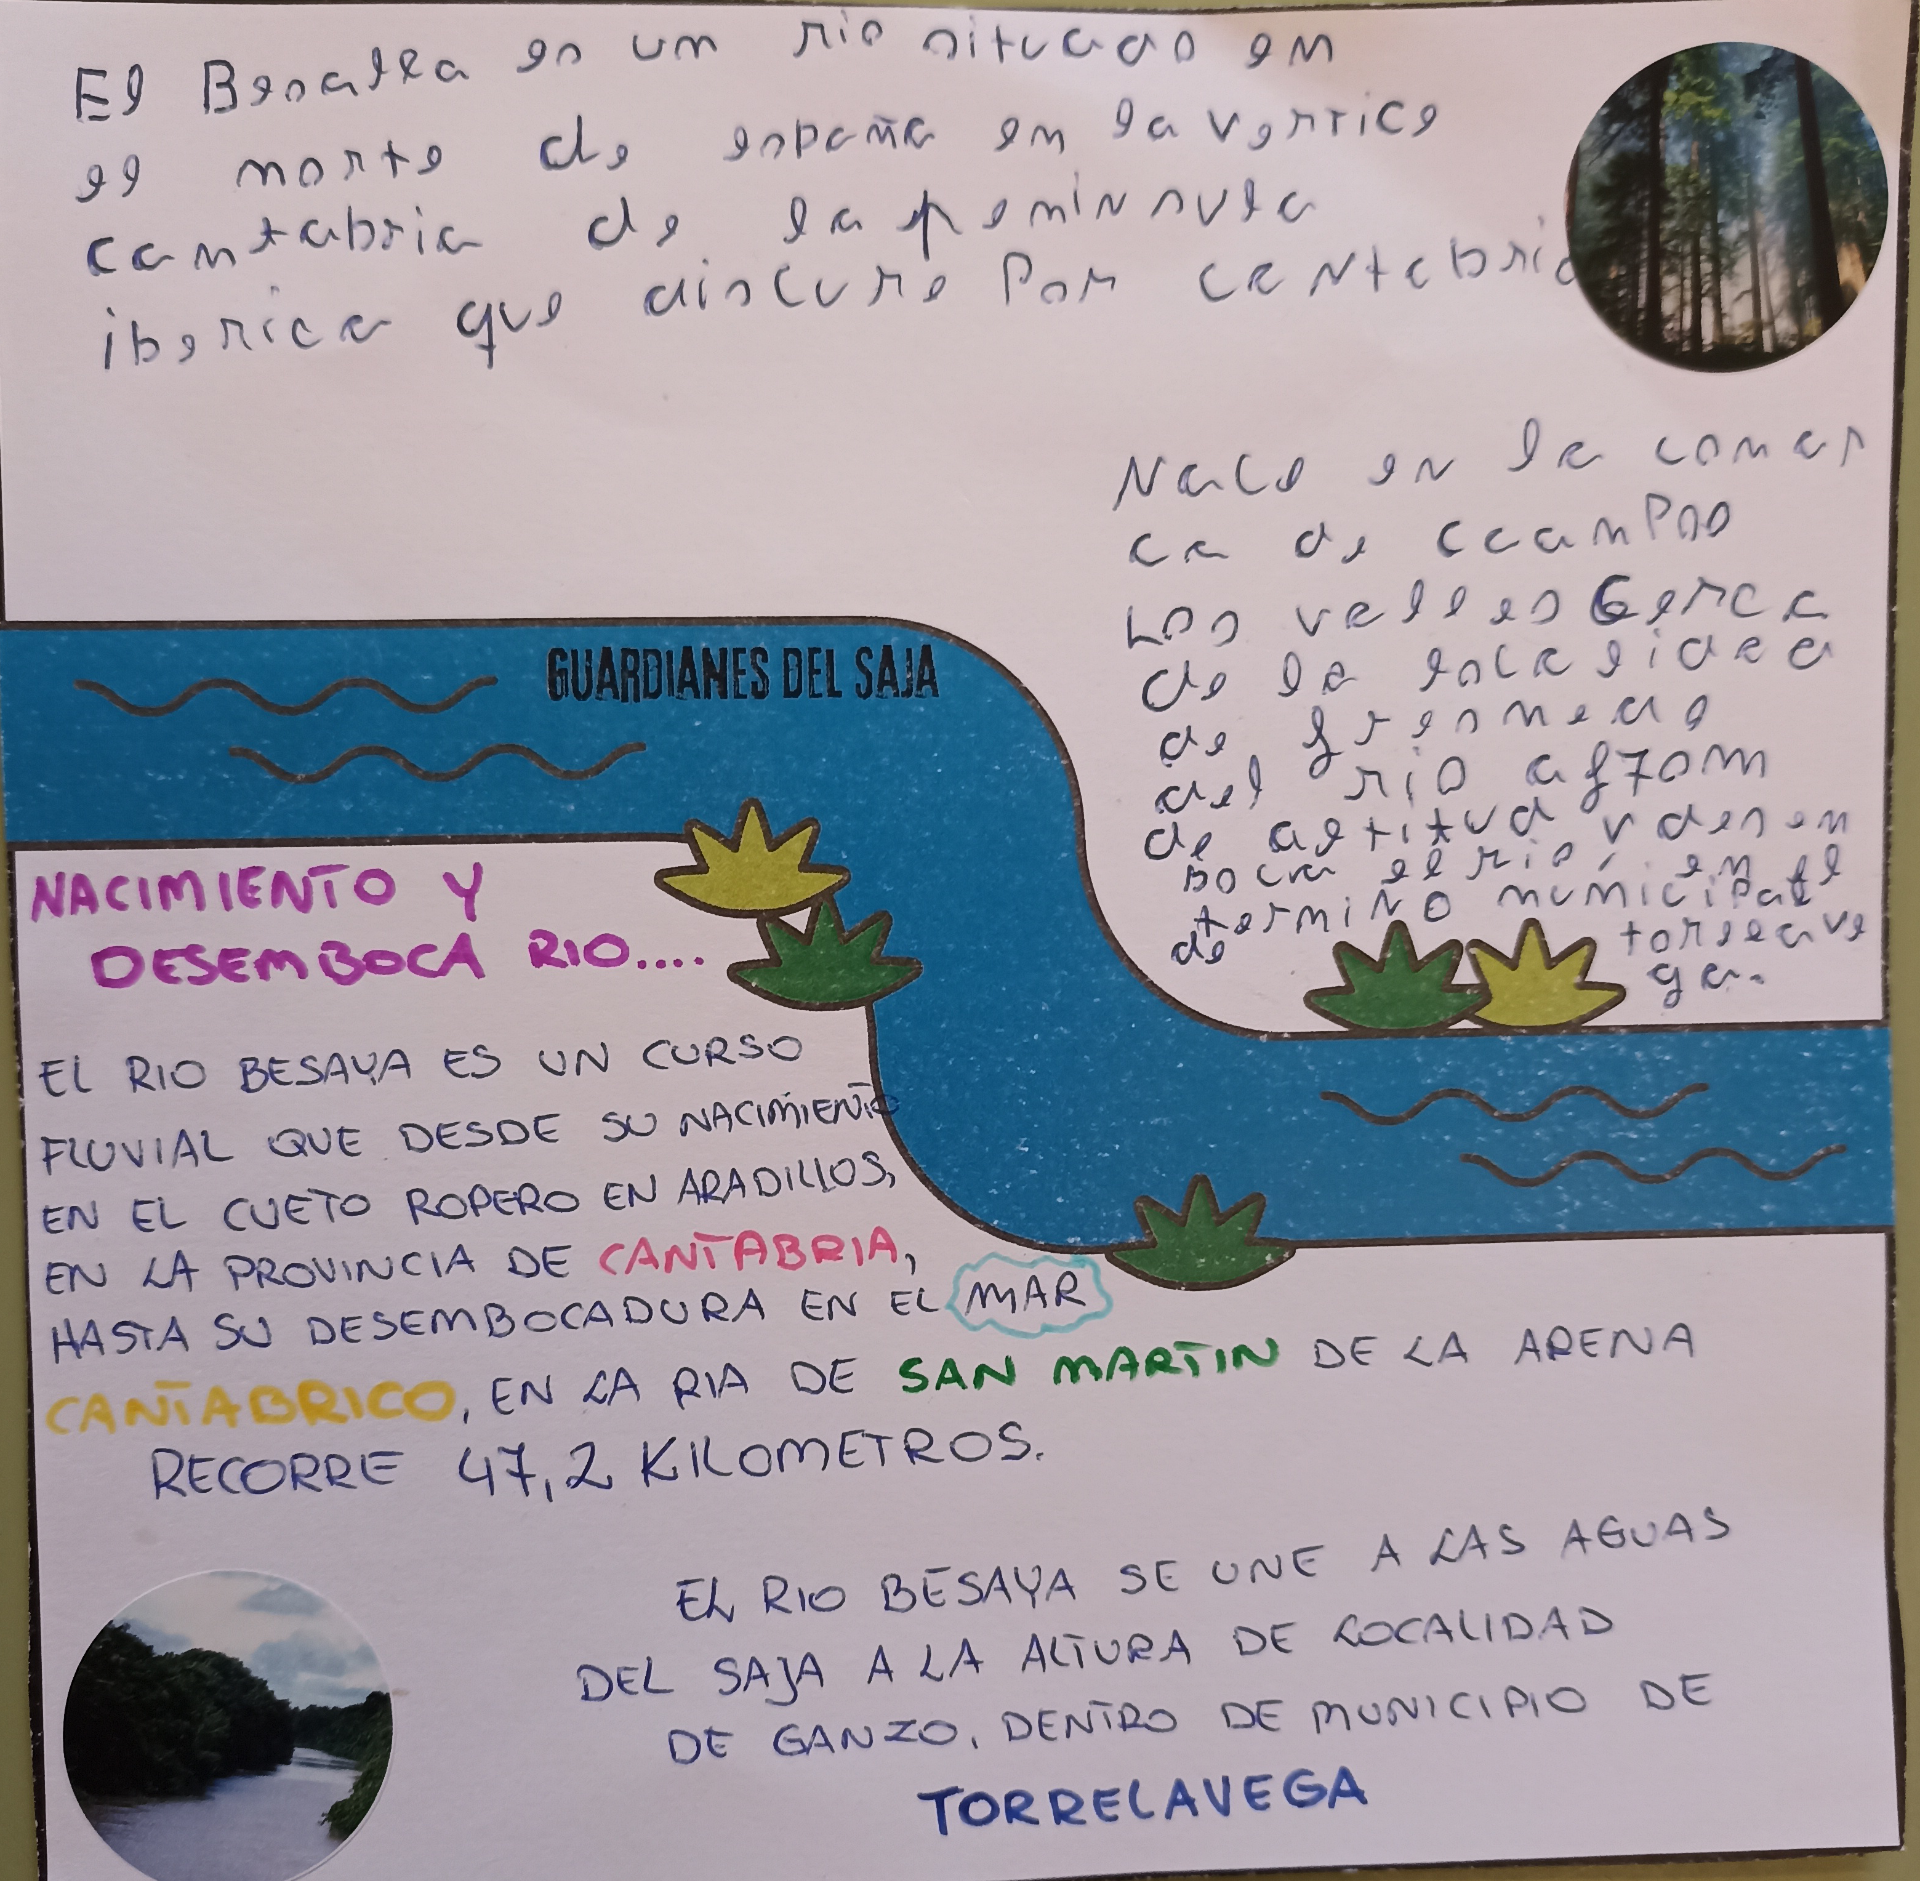 El Besalla es un rio situado en
el norte de españa en la vertice
cantabria de la peninsula
iberica que discure Por cantabria
Nace en la comar
ca de ccamPoo
Los valles Cerca
de la
de fresnedo
del rio a 870m
de altitud y desem
boca el rio, en el
termino municipal
de torrelave
ga.
GUARDIANES DEL SAJA
NACIMIENTO Y
DESEMBOCA RIO....
EL RIO BESAYA ES UN CURSO
FLUVIAL QUE DESDE SU NACIMIENTO
EN EL CUETO ROPERO EN ARADILLOS,
EN LA PROVINCIA DE CANTABRIA,
HASTA SU DESEMBOCADURA EN EL MAR
CANTABRICO, EN LA RIA DE SAN MARTIN DE LA ARENA
RECORRE 47,2 KILOMETROS.
EL RIO BESAYA SE UNE A LAS AGUAS
DEL SAJA A LA ALTURA DE LOCALIDAD
DE GANZO, DENTRO DE MUNICIPIO DE
TORRELAVEGA